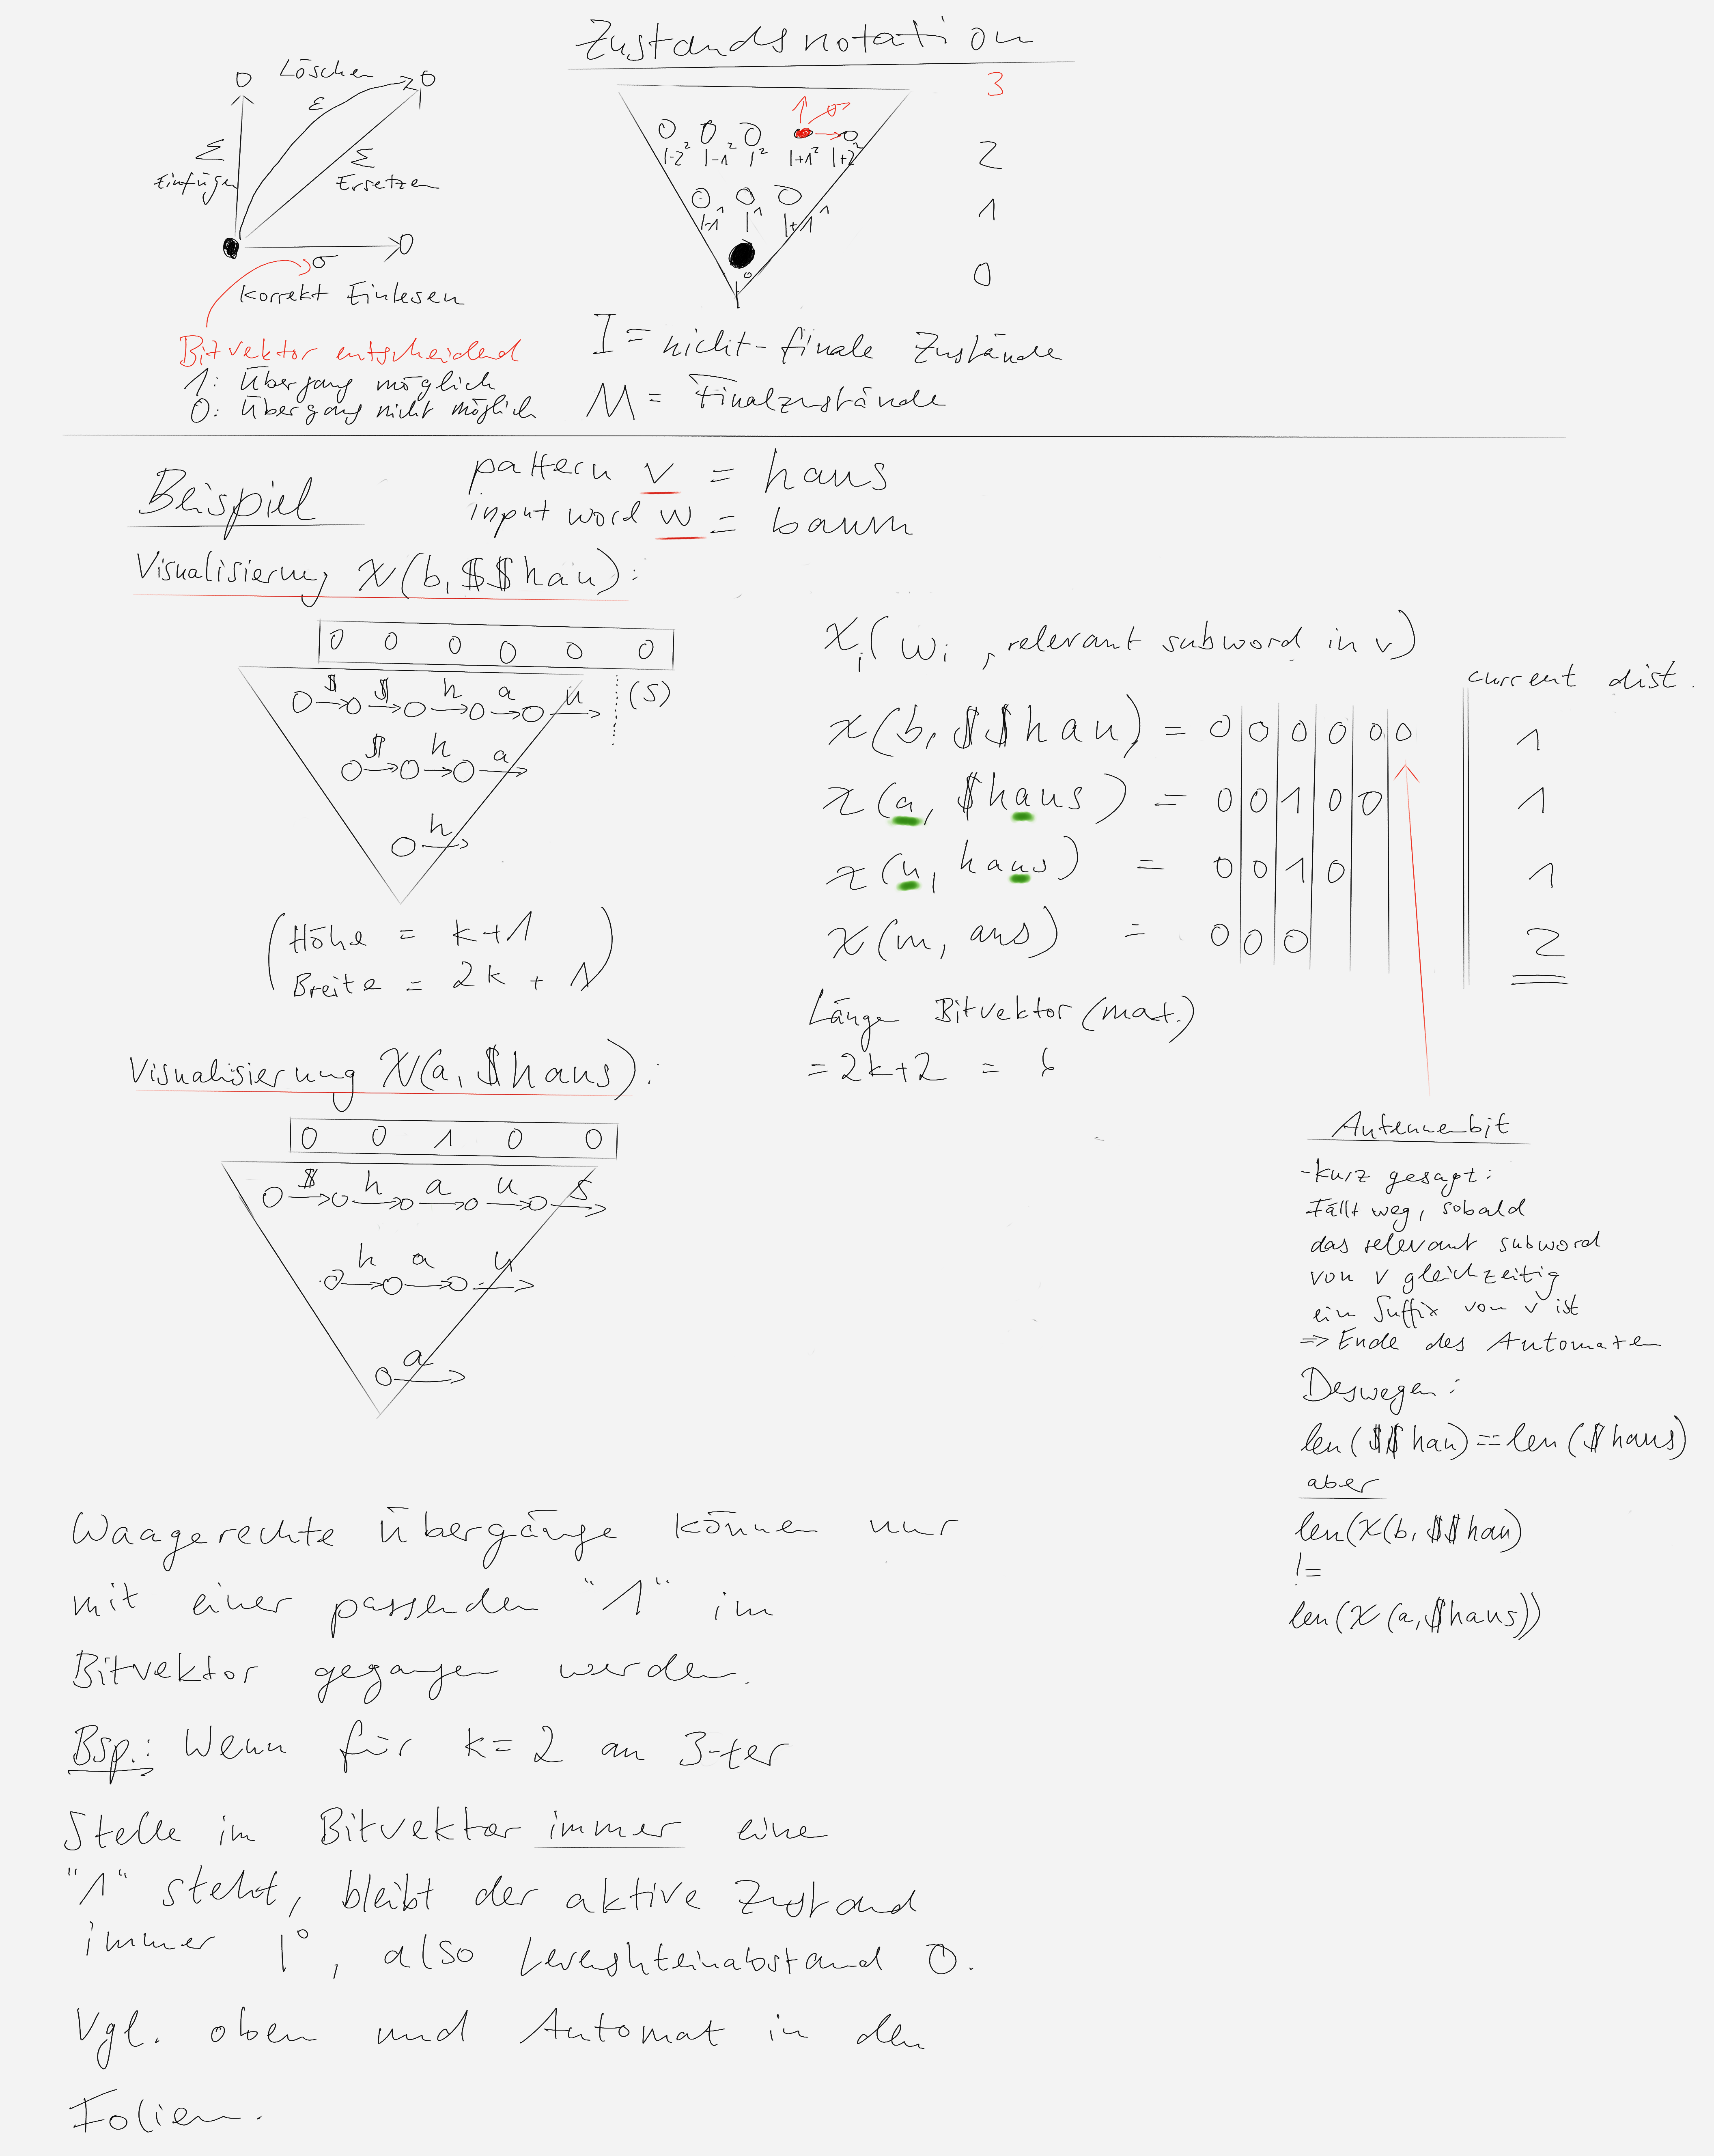 Zustandsnotation
Löschen
ε
Σ
Einfügen
Σ
Ersetzen
σ
Korrekt Einlesen
Bitvektor entscheidend
1: Übergang möglich
0: Übergang nicht möglich
3
σ
I-2² I-1² I² I+1² I+2²
2
I-1¹ I¹ I+1¹
1
I⁰
0
I = nicht-finale Zustände
M = Finalzustände
Beispiel
pattern v = haus
input word w = baum
Visualisierung χ(b, $$hau):
0 0 0 0 0 0
$ $ h a u (s)
$ h a
h
(Höhe = k+1
Breite = 2k + 1)
χi(wi, relevant subword in v)
current dist.
χ(b, $$hau) = 0 0 0 0 0 0 1
χ(a, $haus) = 0 0 1 0 0 1
χ(u, haus) = 0 0 1 0 1
χ(m, aus) = 0 0 0 2
Länge Bitvektor (max.)
= 2k+2 = 6
Visualisierung χ(a, $haus):
0 0 1 0 0
$ h a u s
h a u
a
Antennenbit
- kurz gesagt:
Fällt weg, sobald
das relevant subword
von v gleichzeitig
ein Suffix von v ist
=> Ende des Automaten
Deswegen:
len($$hau) == len($haus)
aber
len(χ(b, $$hau)
!=
len(χ(a, $haus))
Waagerechte Übergänge können nur
mit einer passenden "1" im
Bitvektor gegangen werden.
Bsp.: Wenn für k=2 an 3-ter
Stelle im Bitvektor immer eine
"1" steht, bleibt der aktive Zustand
immer I⁰, also Levenshteinabstand 0.
Vgl. oben und Automat in den
Folien.